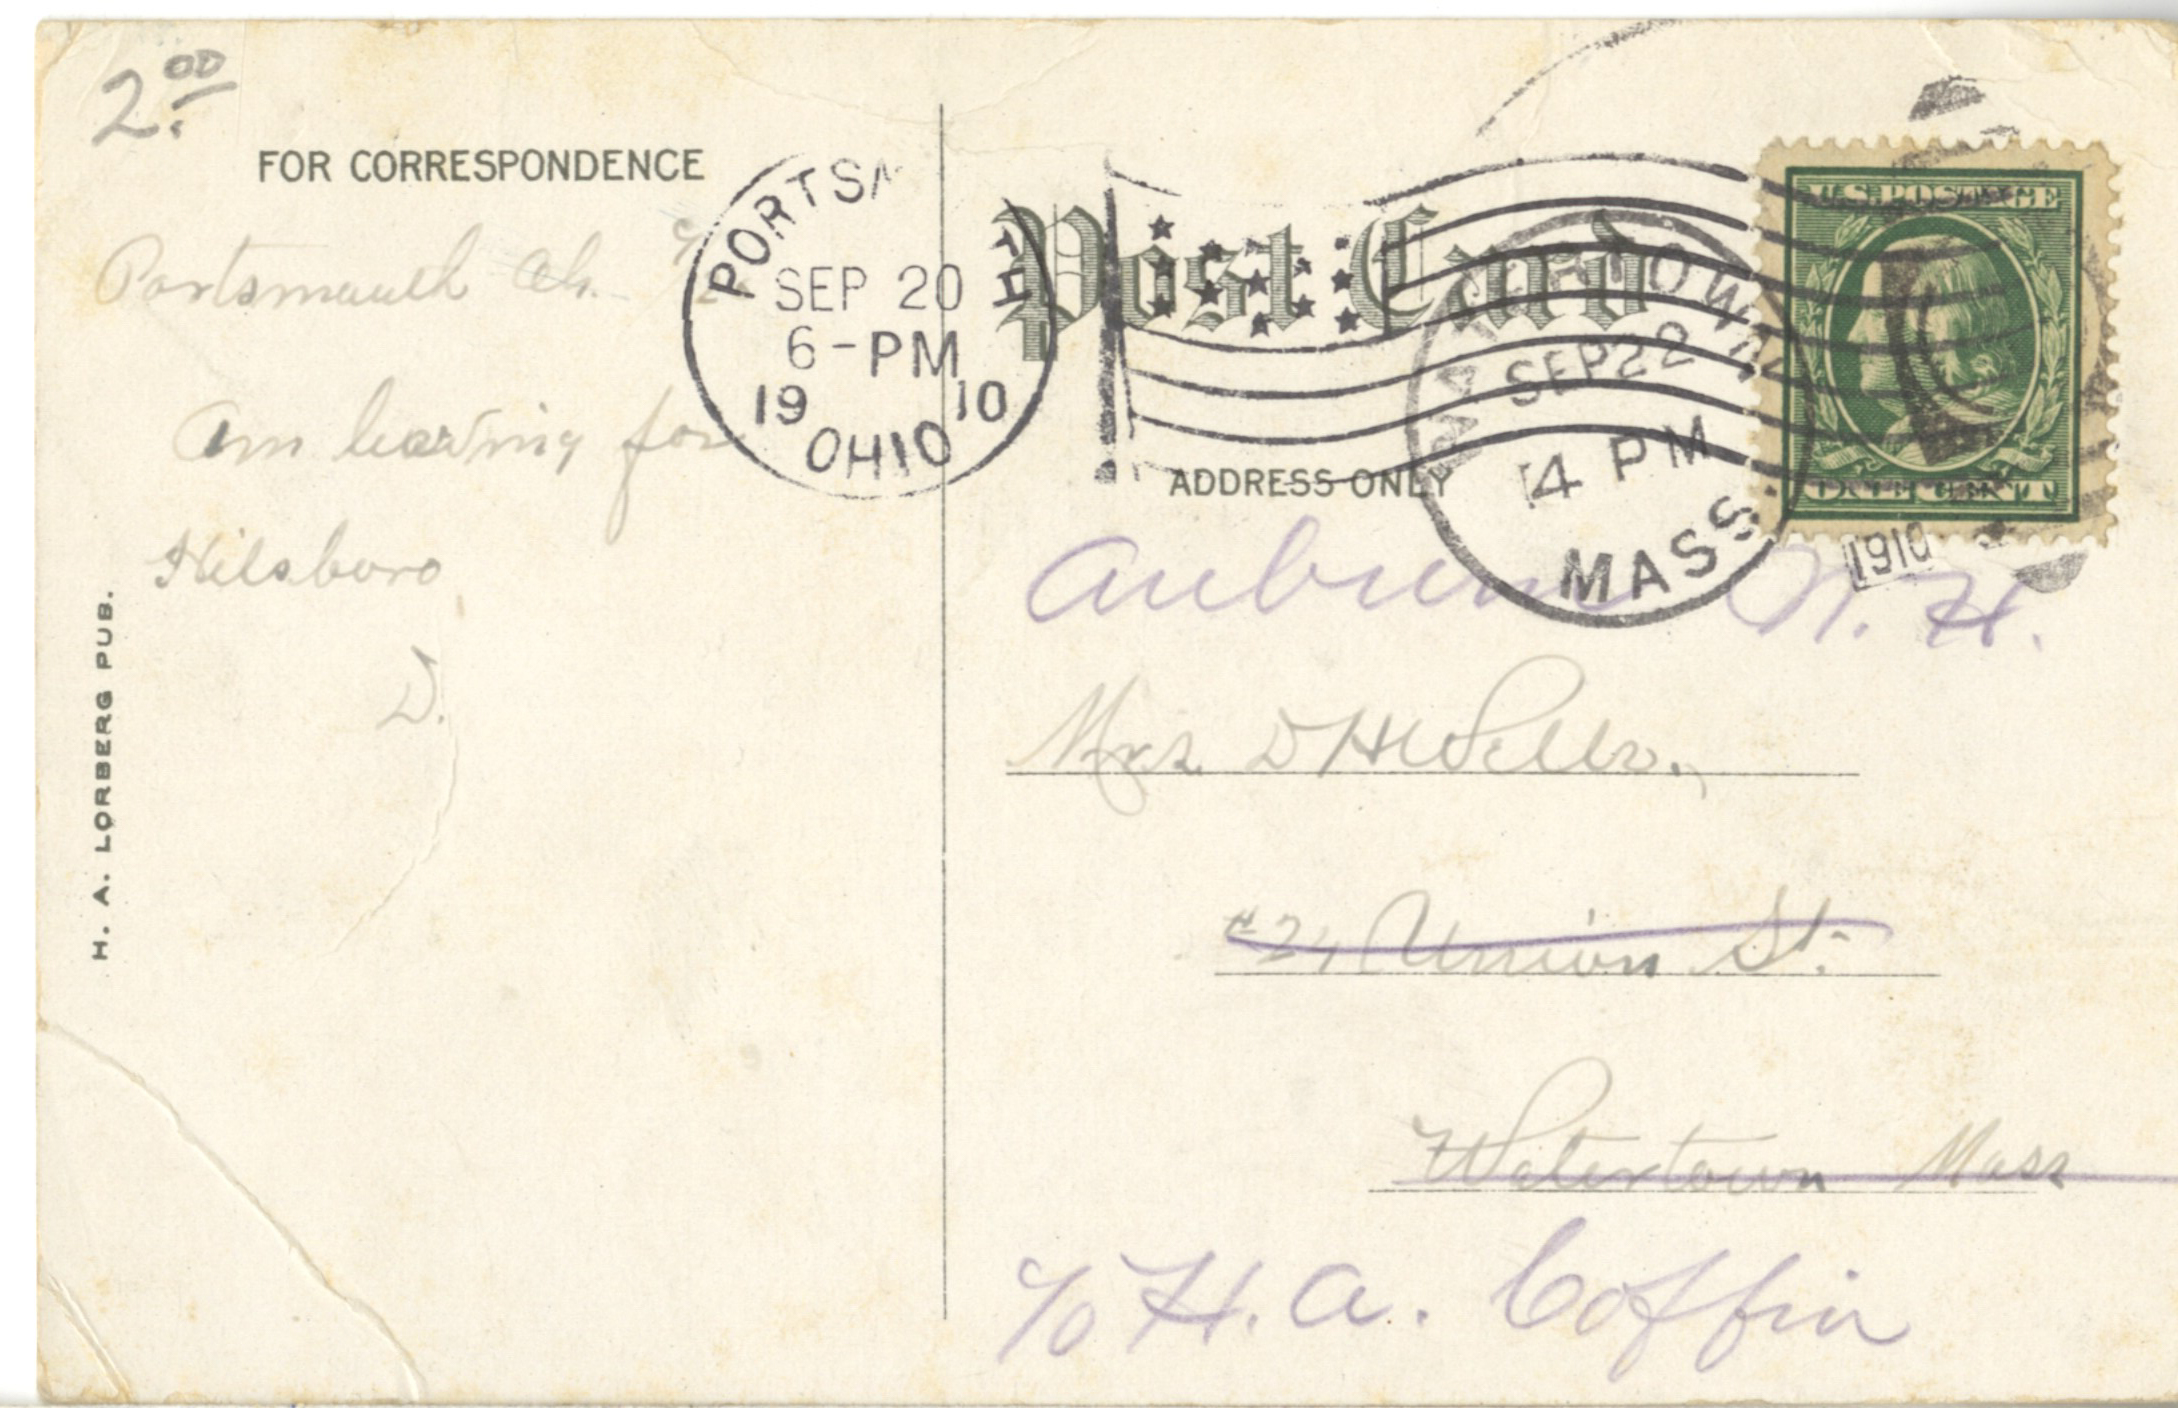 2.00
FOR CORRESPONDENCE
Portsmouth Oh.
Am leaving for
Hilsboro
D.
H. A. LORBERG PUB.
PORTSM TH
SEP 20
6-PM
19 10
OHIO
Post Card
ADDRESS ONLY
WATERTOWN
SEP 22
4 PM
MASS.
1910
U.S. POSTAGE
ONE CENT
Auburn N. H.
Mrs. D H Wells.,
#24 Union St.
Watertown Mass
c/o H. A. Coffin